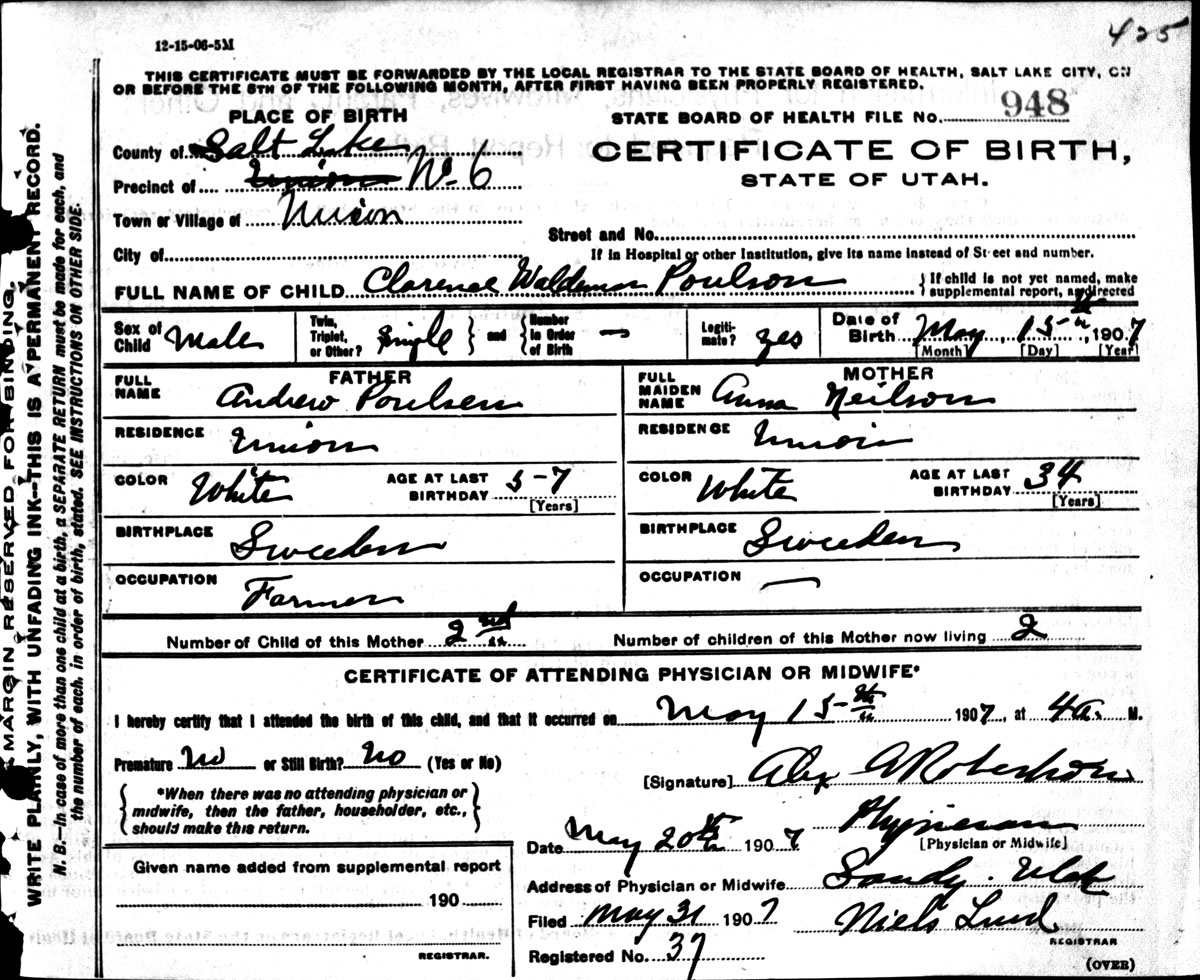 425
12-15-06-5M
THIS CERTIFICATE MUST BE FORWARDED BY THE LOCAL REGISTRAR TO THE STATE BOARD OF HEALTH, SALT LAKE CITY, ON
OR BEFORE THE 5TH OF THE FOLLOWING MONTH, AFTER FIRST HAVING BEEN PROPERLY REGISTERED.
PLACE OF BIRTH
STATE BOARD OF HEALTH FILE No. 948
County of Salt Lake
CERTIFICATE OF BIRTH,
Precinct of Union No 6
STATE OF UTAH.
Town or Village of Union
Street and No.
City of
If in Hospital or other Institution, give its name instead of Street and number.
FULL NAME OF CHILD Clarence Waldemar Poulson
{ If child is not yet named, make
supplemental report, as directed
Sex of Child Male
Twin, Triplet, or Other? Single } and { Number in Order of Birth —
Legiti-mate? yes
Date of Birth May 15th, 1907
[Month] [Day] [Year]
FATHER
FULL NAME Andrew Poulsen
RESIDENCE Union
COLOR White AGE AT LAST BIRTHDAY 57
[Years]
BIRTHPLACE Sweeden
OCCUPATION Farmer
MOTHER
FULL MAIDEN NAME Anna Neilson
RESIDENCE Union
COLOR White AGE AT LAST BIRTHDAY 34
[Years]
BIRTHPLACE Sweeden
OCCUPATION —
Number of Child of this Mother 2nd Number of children of this Mother now living 2
CERTIFICATE OF ATTENDING PHYSICIAN OR MIDWIFE*
I hereby certify that I attended the birth of this child, and that it occurred on May 15th 1907, at 4 a. M.
Premature No or Still Birth? No (Yes or No)
[Signature] Alex G Robertson
{ *When there was no attending physician or
midwife, then the father, householder, etc.,
should make this return. }
Physician
[Physician or Midwife]
Date May 20th 1907
Given name added from supplemental report
190
REGISTRAR.
Address of Physician or Midwife Sandy. Utah
Filed May 31 1907 Niels Lind
REGISTRAR
Registered No. 37
(OVER)
MARGIN RESERVED FOR BINDING.
WRITE PLAINLY, WITH UNFADING INK—THIS IS A PERMANENT RECORD.
N. B.—In case of more than one child at a birth, a SEPARATE RETURN must be made for each, and
the number of each, in order of birth, stated. SEE INSTRUCTIONS ON OTHER SIDE.